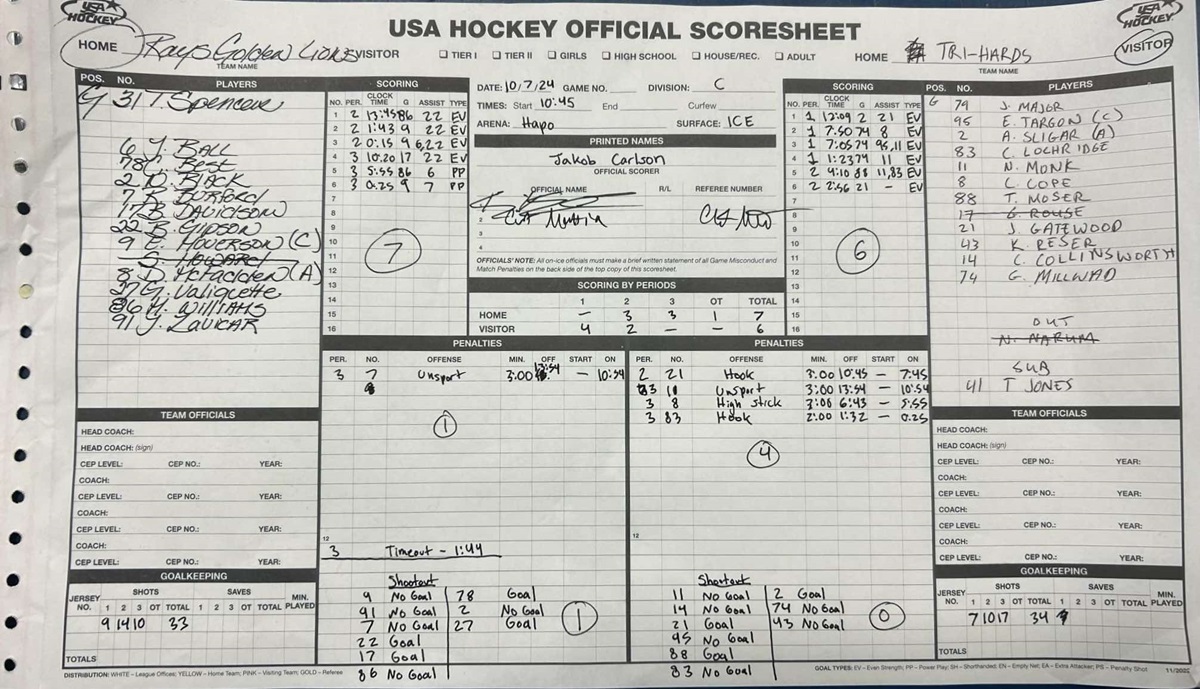 USA HOCKEY
USA HOCKEY OFFICIAL SCORESHEET
USA HOCKEY
HOME Rays Golden Lions VISITOR
TEAM NAME
☐ TIER I ☐ TIER II ☐ GIRLS ☐ HIGH SCHOOL ☐ HOUSE/REC. ☐ ADULT
HOME TRI-HARDS VISITOR
TEAM NAME
POS. NO. PLAYERS
G 31 T. Spencer
6 J. BALL
78 C. Best
2 D. BLACK
7 D. BURFORD
17 B. DAVIDSON
22 B. GIPSON
9 E. HOVERSON (C)
S. HOWARD
8 D. McFadden (A)
27 G. Valiquette
86 M. WILLIAMS
91 J. ZAVICAR
SCORING
NO. PER. CLOCK TIME G ASSIST TYPE
1 2 13:45 86 22 EV
2 2 1:43 9 22 EV
3 2 0:15 9 6,22 EV
4 3 10:20 17 22 EV
5 3 5:55 86 6 PP
6 3 0:25 9 7 PP
7
8
9
10
11
12
13
14
15
16
7
DATE: 10/7/24 GAME NO. DIVISION: C
TIMES: Start 10:45 End Curfew
ARENA: Hapo SURFACE: ICE
PRINTED NAMES
Jakob Carlson
OFFICIAL SCORER
OFFICIAL NAME R/L REFEREE NUMBER
2
3
4
OFFICIALS' NOTE: All on-ice officials must make a brief written statement of all Game Misconduct and
Match Penalties on the back side of the top copy of this scoresheet.
SCORING BY PERIODS
1 2 3 OT TOTAL
HOME — 3 3 1 7
VISITOR 4 2 — — 6
SCORING
NO. PER. CLOCK TIME G ASSIST TYPE
1 1 12:09 2 21 EV
2 1 7:50 74 8 EV
3 1 7:05 74 95,11 EV
4 1 1:23 74 11 EV
5 2 4:10 88 11,83 EV
6 2 2:56 21 - EV
7
8
9
10
11
12
13
14
15
16
6
POS. NO. PLAYERS
G 79 J. MAJOR
95 E. TARGON (C)
2 A. SLIGAR (A)
83 C. LOCHRIDGE
11 N. MONK
8 C. COPE
88 T. MOSER
17 G. ROUSE
21 J. GATEWOOD
43 K. RESER
14 C. COLLINSWORTH
74 G. MILLWAD
OUT
N. NARUM
SUB
41 T JONES
PENALTIES
PER. NO. OFFENSE MIN. OFF START ON
3 7 Unsport 3:00 13:54 — 10:54
1
12
3 Timeout - 1:44
Shootout
9 No Goal 78 Goal
91 No Goal 2 No Goal
7 No Goal 27 Goal
22 Goal
17 Goal
86 No Goal
1
PENALTIES
PER. NO. OFFENSE MIN. OFF START ON
2 21 Hook 3:00 10:45 — 7:45
3 11 Unsport 3:00 13:54 — 10:54
3 8 High stick 3:00 6:43 — 5:55
3 83 Hook 2:00 1:32 — 0:25
4
12
Shootout
11 No Goal 2 Goal
14 No Goal 74 No Goal
21 Goal 43 No Goal
95 No Goal
88 Goal
83 No Goal
0
TEAM OFFICIALS
HEAD COACH:
HEAD COACH: (sign)
CEP LEVEL: CEP NO.: YEAR:
COACH:
CEP LEVEL: CEP NO.: YEAR:
COACH:
CEP LEVEL: CEP NO.: YEAR:
COACH:
CEP LEVEL: CEP NO.: YEAR:
GOALKEEPING
JERSEY NO. SHOTS SAVES MIN. PLAYED
1 2 3 OT TOTAL 1 2 3 OT TOTAL
9 14 10 33
TOTALS
TEAM OFFICIALS
HEAD COACH:
HEAD COACH: (sign)
CEP LEVEL: CEP NO.: YEAR:
COACH:
CEP LEVEL: CEP NO.: YEAR:
COACH:
CEP LEVEL: CEP NO.: YEAR:
COACH:
CEP LEVEL: CEP NO.: YEAR:
GOALKEEPING
JERSEY NO. SHOTS SAVES MIN. PLAYED
1 2 3 OT TOTAL 1 2 3 OT TOTAL
7 10 17 34
TOTALS
DISTRIBUTION: WHITE – League Offices; YELLOW – Home Team; PINK – Visiting Team; GOLD – Referee
GOAL TYPES: EV – Even Strength; PP – Power Play; SH – Shorthanded; EN – Empty Net; EA – Extra Attacker; PS – Penalty Shot